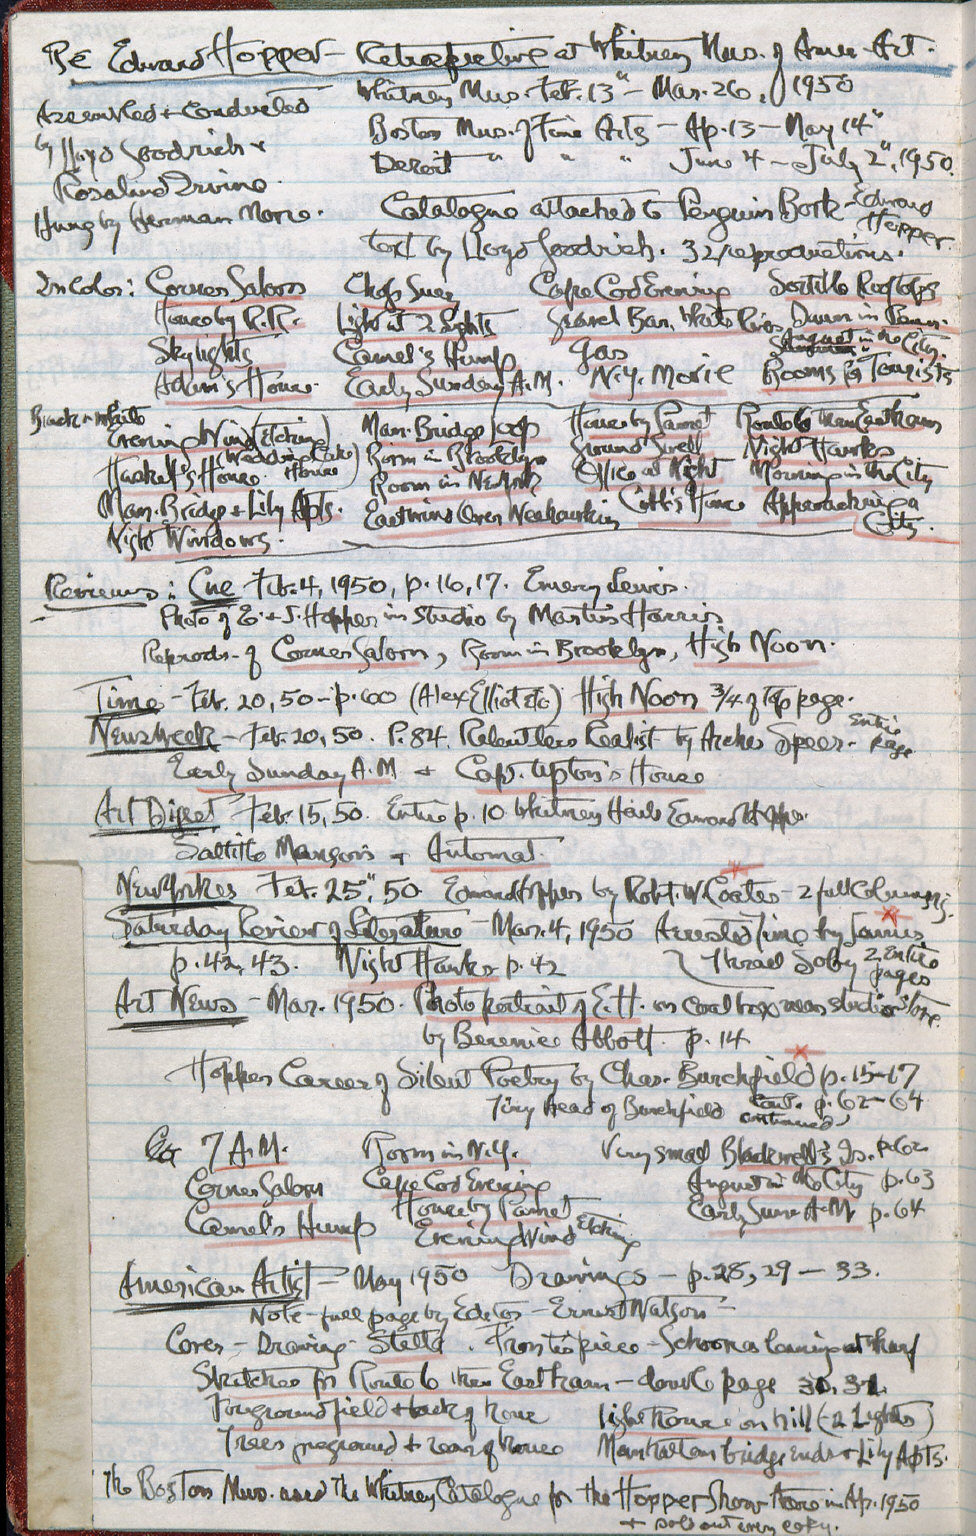 Re Edward Hopper – Retrospective at Whitney Mus. of Amer. Art.
Assembled + Conducted
by Lloyd Goodrich +
Rosalind Irvine.
Hung by Herman More.
Whitney Mus. Feb. 13" – Mar. 26, 1950
Boston Mus. of Fine Arts – Ap. 13 – May 14"
Detroit " " " June 4 – July 2", 1950.
Catalogue attached to Penguin Book – Edward Hopper.
text by Lloyd Goodrich. 32 reproductions.
In Color: Corner Saloon Chop Suey Cape Cod Evening Saltillo Rooftops
House by R.R. Light at 2 Lights Gravel Bar, White River Dawn in Penn.
Skylights Camel's Hump Gas August in the City.
Adam's House. Early Sunday A.M. N.Y. Movie Rooms for Tourists
Black + White
Evening Wind (Etching) Man. Bridge Loop House by Pamet Route 6 than Eastham
Haskel's House. (Wedding Cake House) Room in Brooklyn Ground Swell Night Hawks
Room in New York Office at Night Morning in the City
Man. Bridge + Lily Apts. East wind Over Weehawkin Cobb's House Approaching a City.
Night Windows.
Reviews: Cue Feb. 4, 1950, p. 16, 17. Emery Lewis.
Photo of E. + J. Hopper in Studio by Martin Harris
Reprods. of Corner Saloon, Room in Brooklyn, High Noon.
Time – Feb. 20, 50 – p. 60 (Alex Elliot etc) High Noon 3/4 of top page.
Newsweek – Feb. 20, 50. P. 84. Relentless Realist by Archer Speer – Entire page
Early Sunday A.M + Capt. Upton's House
Art Digest Feb. 15, 50. Entire p. 10 Whitney Hails Edward Hopper
Saltillo Mansion + Automat.
New Yorker Feb. 25", 50. Edward Hopper by Robt. W. Coates – 2 full Columns.
Saturday Review of Literature – Mar. 4, 1950 Arrested Time by James
p. 42, 43. Night Hawks p. 42 Thrall Soby 2 Entire pages
Art News – Mar. 1950. Photo portrait of E.H. on coal box near studio stove.
by Berenice Abbott. p. 14
Hopper Career of Silent Poetry by Chas. Burchfield p. 15–17
Tiny head of Burchfield Cont. p. 62–64
continued
7 A.M. Room in N.Y. Very small Blackwell's Is. p. 62
Corner Saloon Cape Cod Evening August in the City p. 63
Camel's Hump House by Pamet Early Sun. A.M. p. 64
Evening Wind Etching
American Artist – May 1950 Drawings – p. 28, 29 – 33.
Note – full page by Editor – Ernest Watson –
Cover – Drawing – Stella. Frontispiece – Schooner leaning at wharf
Sketches for Route 6 then Eastham – double page 30, 31.
Foreground field + back of house light house on hill (2 Lights)
Trees foreground + rear of house Manhattan bridge ends + Lily Apts.
The Boston Mus. used the Whitney Catalogue for the Hopper Show there in Ap. 1950
+ sold out every copy.